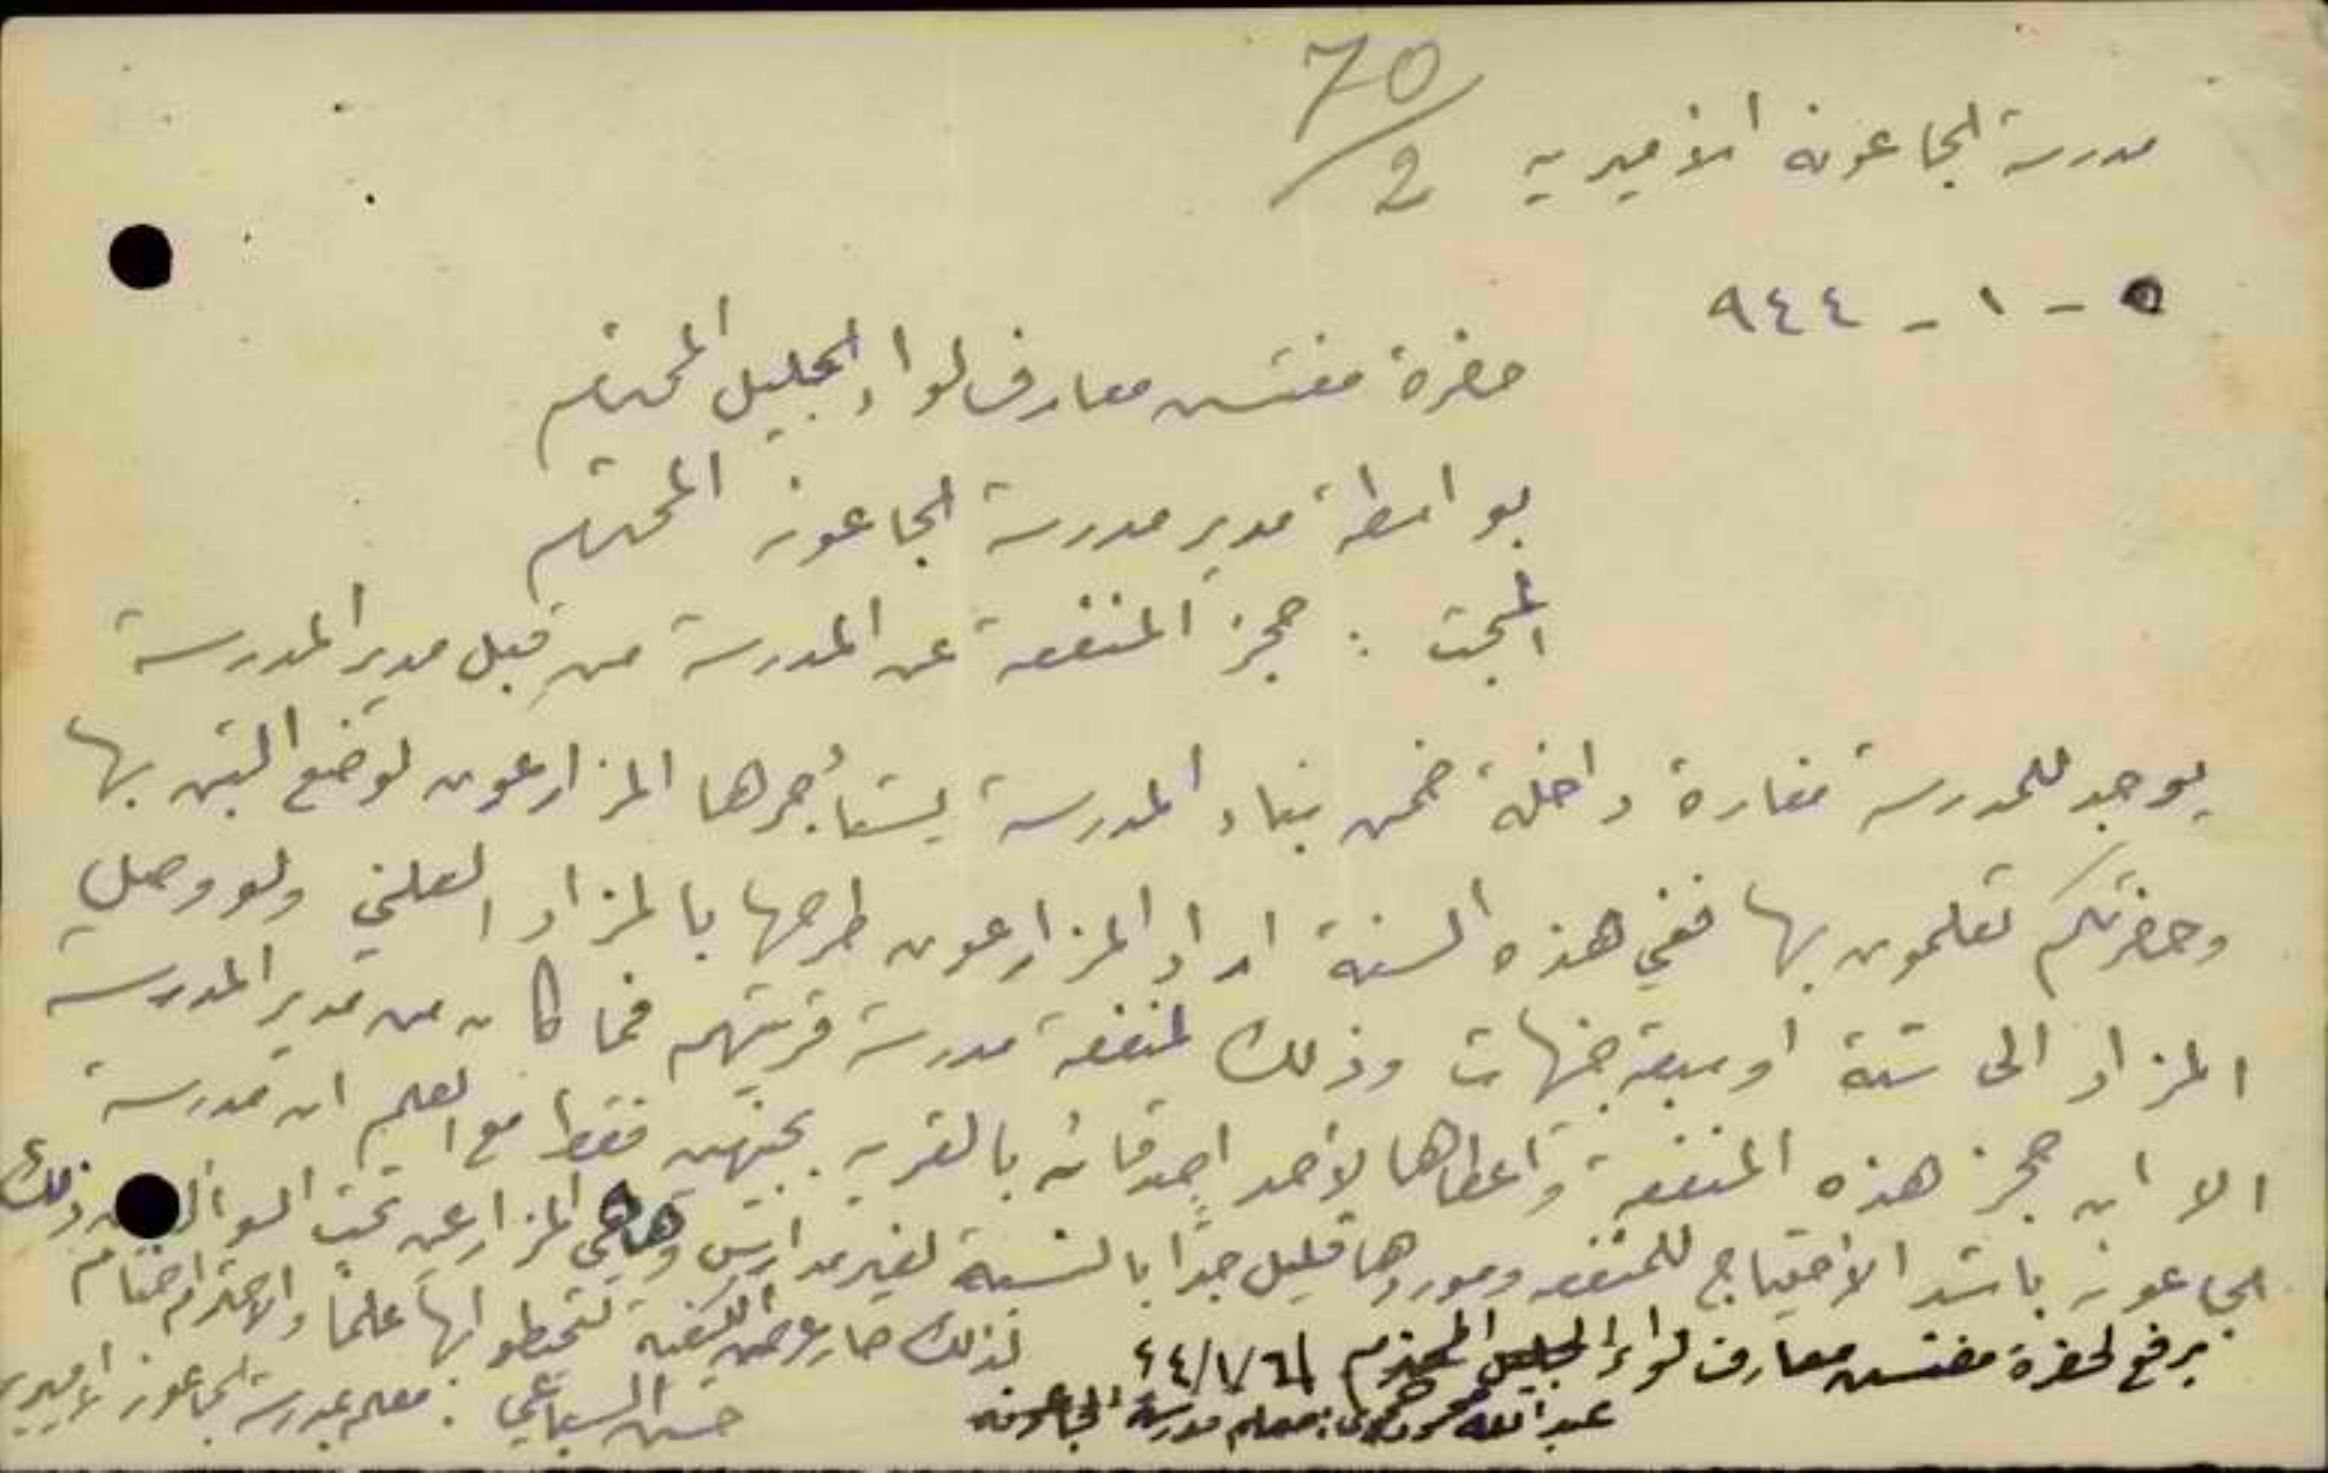 70/2
مدرسة الجاعونه الاميريه
٥ - ١ - ٩٤٤
حضرة مفتش معارف لواء الجليل المحترم
بواسطة مدير مدرسة الجاعونه المحترم
المبحث : حجز المنفعه عن المدرسة من قبل مدير المدرسة
يوجد للمدرسة مغارة داخلة ضمن بناء المدرسة يستأجرها المزارعون لوضع التبن بها
وحضرتكم تعلمون بها ففي هذه السنة اراد المزارعون طرحها بالمزاد العلني ولو وصل
المزاد الى ستة او سبعة جنيهات وذلك لمنفعة مدرسة قريتهم فما كان من مدير المدرسة
الا ان حجز هذه المنفعه واعطاها لأحد اصدقائه بالقريه بجنيهين فقط مع العلم ان مدرسة
الجاعونه باشد الأحتياج للمنفعه وموردها قليل جداً بالنسبة لغير مدارس وهاهي المزارعين تحت السوال عن ذلك
لذلك صار عرض الكيفية لتحيطوا بها علماً والاحترام ختام
حسن السباعي : معلم بمدرسة الجاعونه الاميريه
يرفع لحضرة مفتش معارف لواء الجليل المحترم
عبدالله : معلم مدرسة الجاعونه